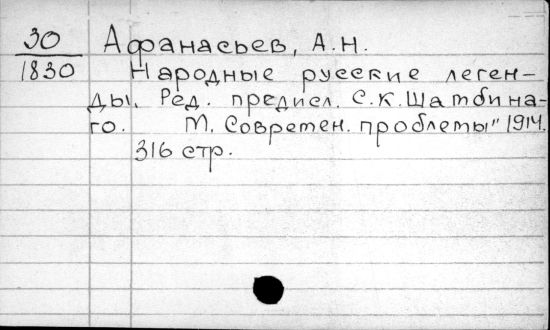 30 Афанасьев, А.Н.
1830 Народные русские леген-
ды. Ред. предисл. С.К. Шамбина-
го. М. Современ. проблемы" 1914.
316 стр.